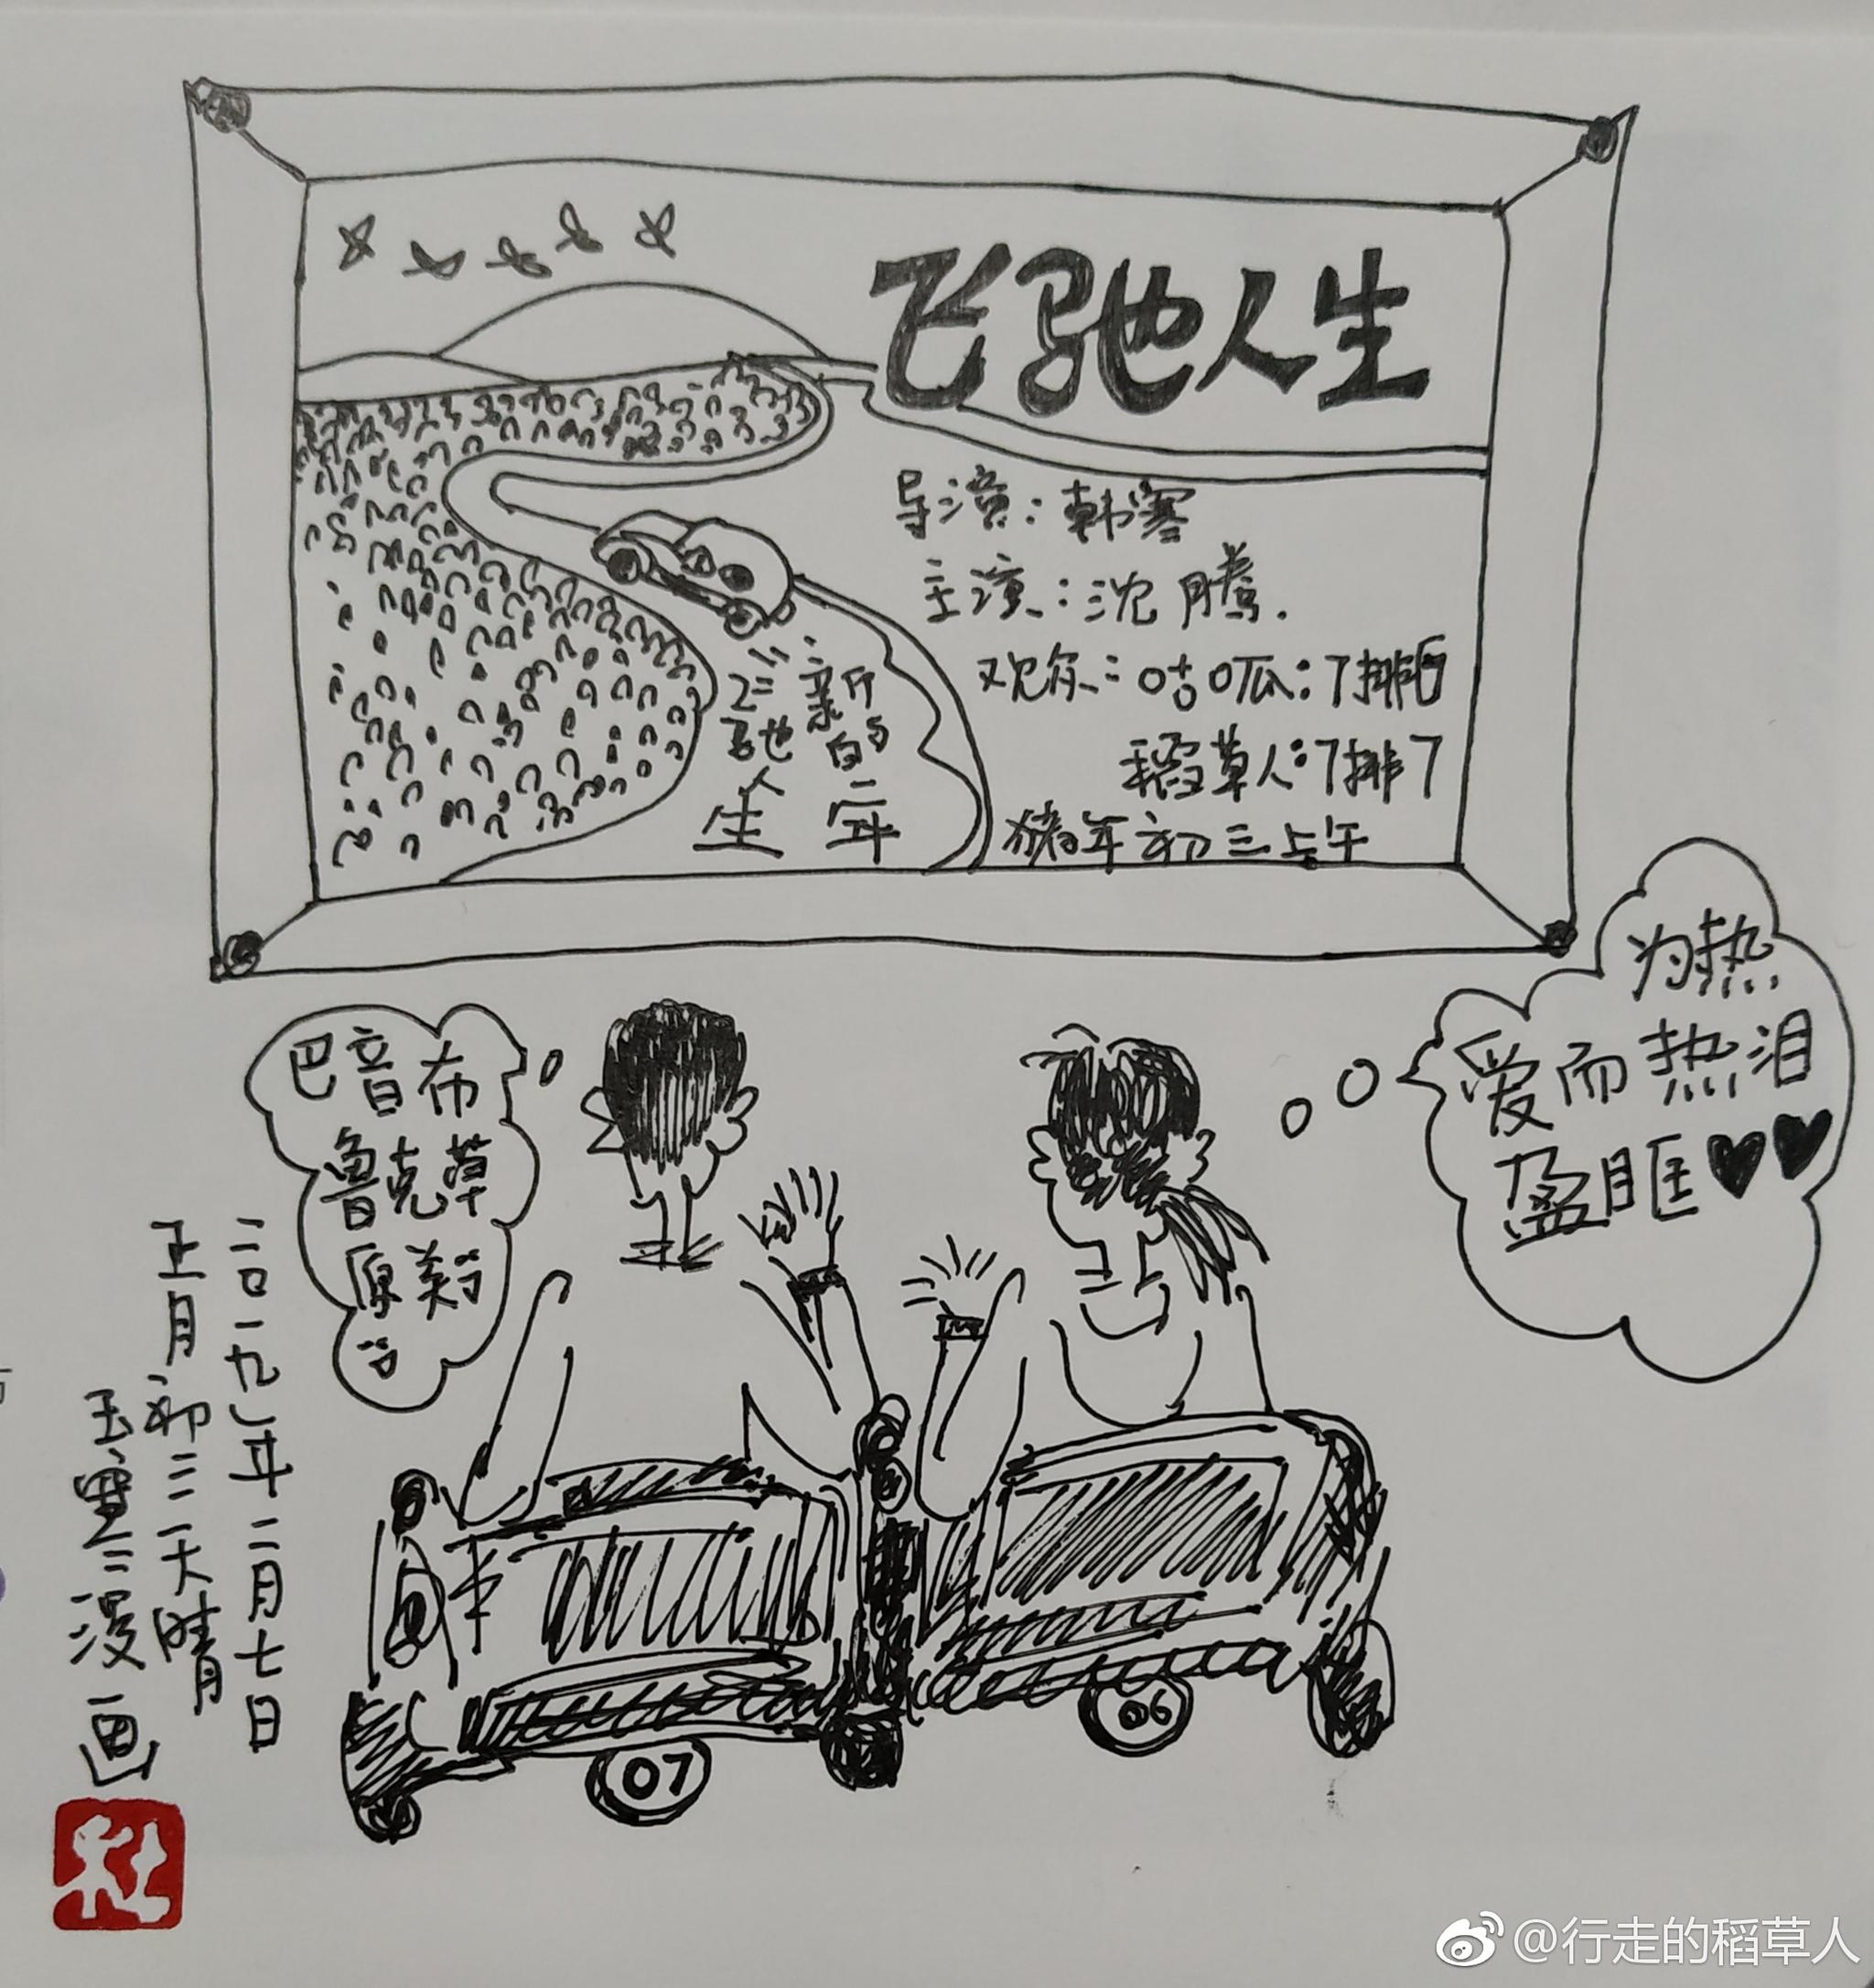 飞驰人生
导演：韩寒
主演：沈腾.
观众：咕呱：7排6
稻草人：7排7
猪年初三上午
新的一年
飞驰人生
巴音布
鲁克草
原美
为热
爱而热泪
盈眶♥♥
二〇一九年二月七日
正月初三天晴
漫画
07
06
@行走的稻草人